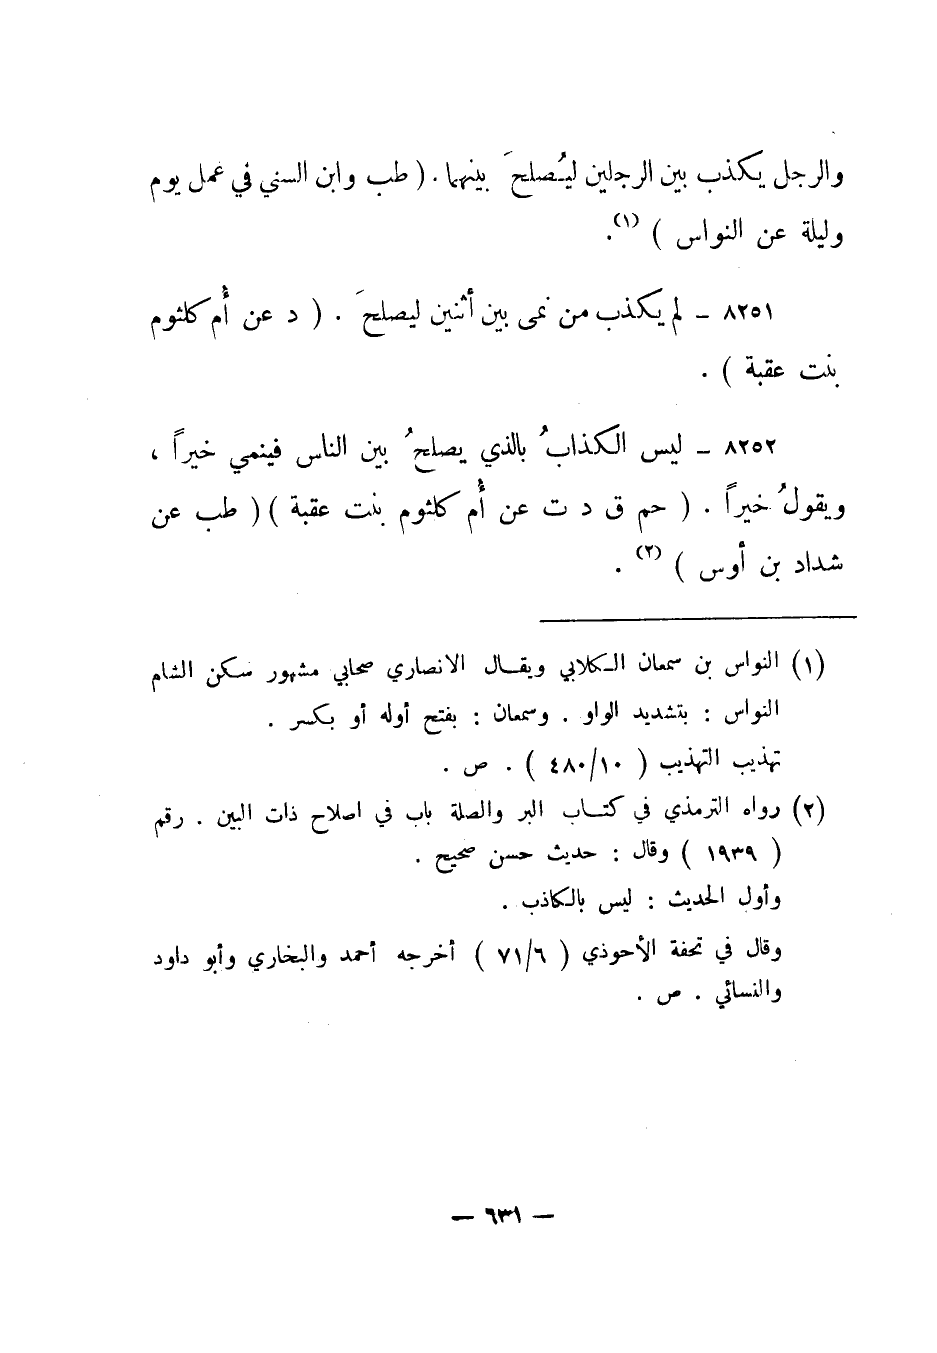 والرجل يكذب بين الرجلين ليُصلحَ بينهما . ( طب وابن السني في عمل يوم
وليلة عن النواس ) (١).
٨٢٥١ – لم يكذب من نمى بين أثنين ليصلحَ . ( د عن أُم كلثوم
بنت عقبة ) .
٨٢٥٢ – ليس الكذابُ بالذي يصلحُ بين الناس فينمي خيراً ،
ويقولُ خيراً . ( حم ق د ت عن أُم كلثوم بنت عقبة )( طب عن
شداد بن أوس ) (٢) .
(١) النواس بن سمعان الكلابي ويقال الانصاري صحابي مشهور سكن الشام
النواس : بتشديد الواو . وسمعان : بفتح أوله أو بكسر .
تهذيب التهذيب ( ٤٨٠/١٠ ) . ص .
(٢) رواه الترمذي في كتاب البر والصلة باب في اصلاح ذات البين . رقم
( ١٩٣٩ ) وقال : حديث حسن صحيح .
وأول الحديث : ليس بالكاذب .
وقال في تحفة الأحوذي ( ٧١/٦ ) أخرجه أحمد والبخاري وأبو داود
والنسائي . ص .
— ٦٣١ —